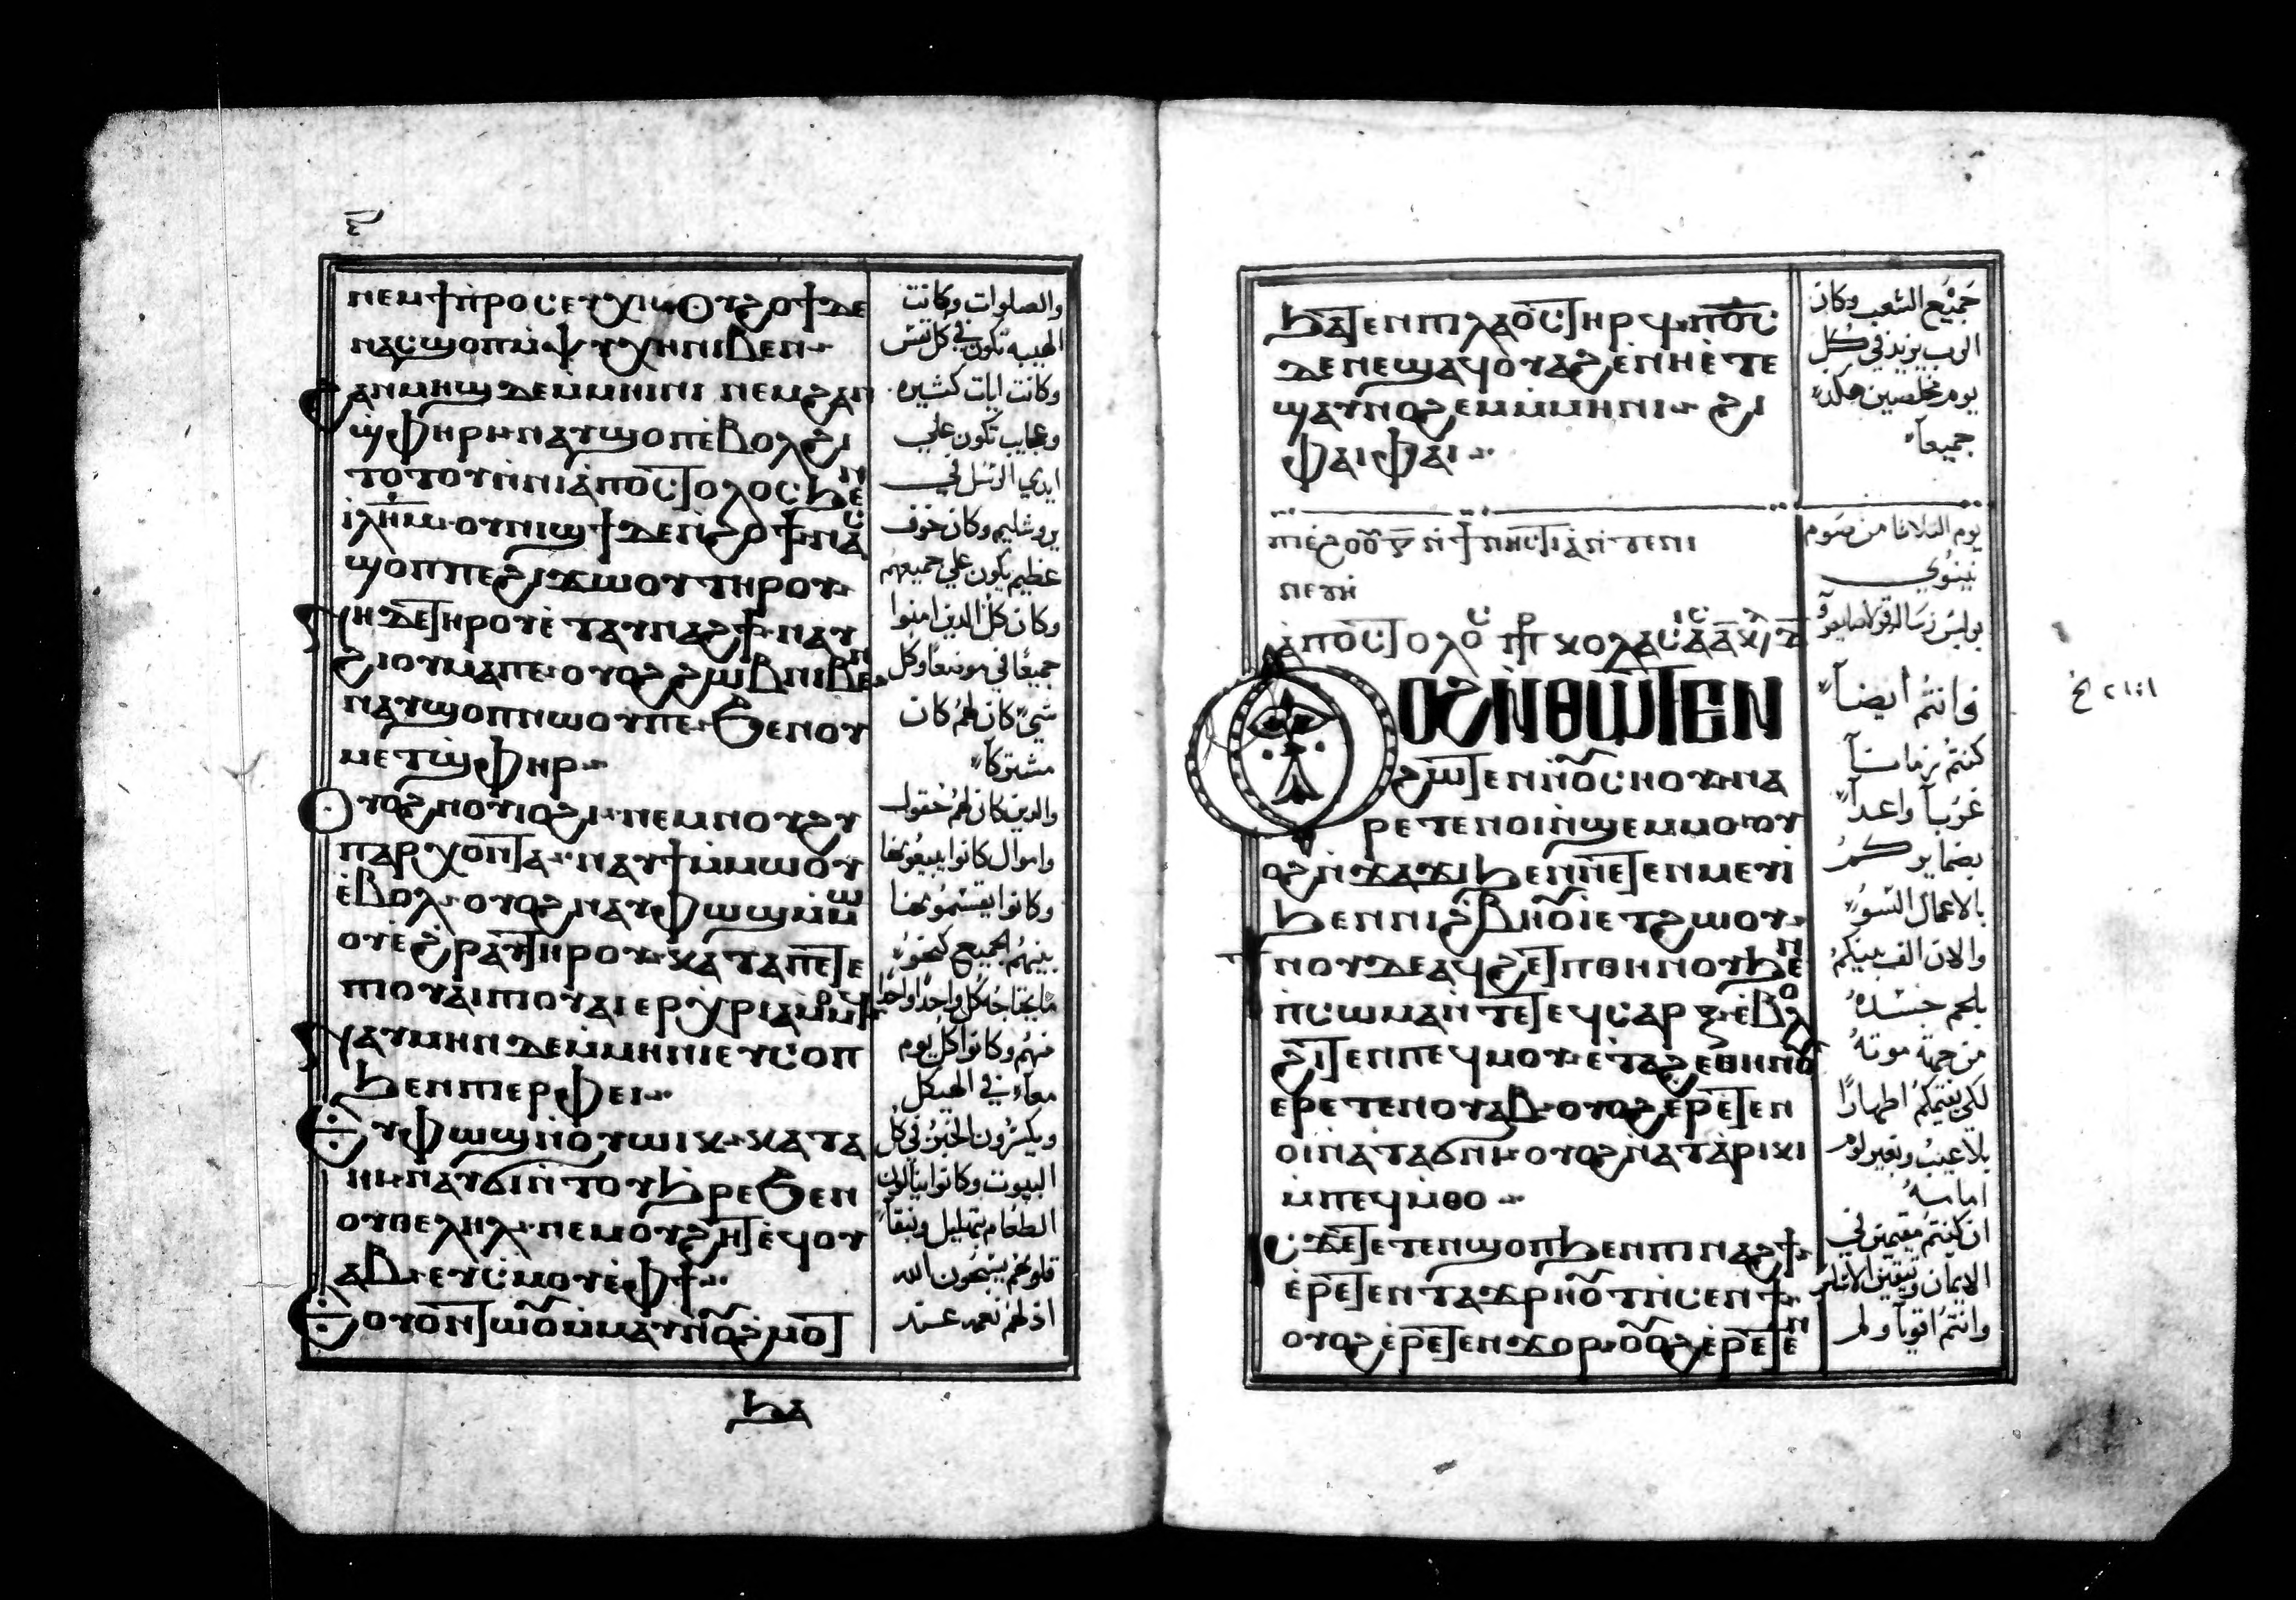 ⲛⲉⲙϯⲡⲣⲟⲥⲉⲩⲭⲏ ⲟⲩϩⲟϯⲇⲉ
ⲛⲁⲥϣⲟⲡⲙ̀ⲯⲩⲭⲏⲛⲓⲃⲉⲛ
ϩⲁⲛⲙⲏϣⲇⲉⲙⲙⲏⲓⲛⲓ ⲛⲉⲙϩⲁⲛ
ϣ̀ⲫⲏⲣⲓ ⲛⲁⲩϣⲟⲡⲉ̀ⲃⲟⲗϩⲓ
ⲧⲟⲧⲟⲩⲛ̀ⲛⲓⲁ̀ⲡⲟⲥⲧⲟⲗⲟⲥϧⲉⲛ
ⲓⲗⲏ̅ⲙ̅ ⲟⲩⲛⲓϣϯⲇⲉⲛ̀ϩⲟϯⲛⲁⲥ
ϣⲟⲡⲡⲉϩⲓϫⲱⲟⲩⲧⲏⲣⲟⲩ
ⲛⲏⲇⲉⲧⲏⲣⲟⲩⲉ̀ⲧⲁⲩⲛⲁϩϯ ⲛⲁⲩ
ϩⲓⲟⲩⲙⲁⲡⲉ ⲟⲩⲟϩϩⲱⲃⲛⲓⲃⲉⲛ
ⲛⲁⲩϣⲟⲡⲛⲱⲟⲩⲡⲉ ϧⲉⲛⲟⲩ
ⲙⲉⲧϣ̀ⲫⲏⲣ
ⲟⲩⲟϩⲛⲟⲩⲓⲟϩⲓ ⲛⲉⲙⲛⲟⲩϩⲩ
ⲡⲁⲣⲭⲟⲛⲧⲁ ⲛⲁⲩϯⲙ̀ⲙⲱⲟⲩ
ⲉ̀ⲃⲟⲗ ⲟⲩⲟϩⲛⲁⲩⲫⲱϣⲙ̀ⲙⲱ
ⲟⲩⲉ̀ϩⲣⲁⲩⲧⲏⲣⲟⲩ ⲕⲁⲧⲁⲡⲉⲧⲉ
ⲡⲓⲟⲩⲁⲓⲡⲓⲟⲩⲁⲓⲉⲣⲭⲣⲓⲁⲙ̀ⲙⲟϥ
ⲛⲁⲩⲙⲏⲛⲇⲉⲙ̀ⲙⲏⲛⲓⲉⲩⲥⲟⲡ
ϧⲉⲛⲡⲓⲉⲣⲫⲉⲓ
ⲉⲩⲫⲱϣⲛ̀ⲟⲩⲱⲓⲕ ⲕⲁⲧⲁ
ⲏⲓ ⲛⲁⲩϭⲓⲛ̀ⲧⲟⲩϧⲣⲉϧⲉⲛ
ⲟⲩⲑⲉⲗⲏⲗ ⲛⲉⲙⲟⲩϩⲏⲧⲉϥⲟⲩ
ⲁⲃ ⲉⲩⲥⲙⲟⲩⲉ̀ⲫϯ
ⲉⲟⲩⲟⲛⲧⲱⲟⲩⲙ̀ⲙⲁⲩⲛ̀ⲟⲩϩⲙⲟⲧ
ϧⲁ
والصلوات وكانت
الهيبه تكون في كل نفس
وكانت ايات كثيره
وعجايب تكون علي
ايدي الرسل في
يروشليم وكان خوف
عظيم يكون علي جميعهم
وكان كل الذين امنوا
جميعًا في موضعًا وكل
شي كان لهم كان
مشتركاً
والذين كان لهم حقول
واموال كانوا يبيعونها
وكانوا يقسمونها
بينهم الجميع كنحو
ما يحتاجه كل واحدًا واحدًا
منهم وكانوا كل يوم
معاً في الهيكل
ويكسرون الخبز في كل
البيوت وكانوا ينالون
الطعام بتهليل ونقا
قلوبهم يسبحون الله
اذ لهم نعمه عند
ϧⲁⲧⲉⲛⲡⲓⲗⲁⲟⲥⲧⲏⲣϥ ⲡⲟ̅ⲥ̅
ⲇⲉⲛⲉϣⲁϥⲟⲩⲁϩⲉ̀ⲛⲏⲉ̀ⲧⲉ
ϣⲁⲩⲛⲟϩⲉⲙⲙ̀ⲙⲏⲛⲓ ϩⲓ
ⲫⲁⲓⲫⲁⲓ
جميع الشعب وكان
الرب يزيد في كل
يوم مخلصين هكذا
جميعاً
ⲡⲓⲉ̀ϩⲟⲟⲩ ⲛ̀ϯⲛⲏⲥⲧⲓⲁⲛ̀ⲧⲉⲛⲓ
ⲛⲉⲩⲏ̀
ⲁⲡⲟⲥⲧⲟⲗⲟⲥ ⲡⲣ ⲕⲟⲗⲁⲥ
ⲟⲩⲟϩⲛ̀ⲑⲱⲧⲉⲛ
ϩⲱⲧⲉⲛⲛ̀ⲟⲩⲥⲏⲟⲩ ⲛⲁ
ⲣⲉⲧⲉⲛⲟⲓⲛ̀ϣⲉⲙⲙⲟ ⲟⲩ
ⲟϩⲛ̀ϫⲁϫⲓϧⲉⲛⲡⲉⲧⲉⲛⲙⲉⲩⲓ
ϧⲉⲛⲛⲓϩ̀ⲃⲏⲟⲩⲓ̀ⲉⲧϩⲱⲟⲩ
ϯⲛⲟⲩⲇⲉⲁϥϩⲉⲧⲡⲑⲏⲛⲟⲩϧⲉⲛ
ⲡⲥⲱⲙⲁⲛ̀ⲧⲉⲧⲉϥⲥⲁⲣⲝ ⲉ̀ⲃⲟⲗ
ϩⲓⲧⲉⲛⲡⲉϥⲙⲟⲩ ⲉ̀ⲧⲁϩⲉⲑⲏⲛⲟⲩ
ⲉⲣⲉⲧⲉⲛⲟⲩⲁⲃ ⲟⲩⲟϩⲉ̀ⲣⲉⲧⲉⲛ
ⲟⲓⲛ̀ⲁⲧⲁϭⲛⲓ ⲟⲩⲟϩⲛ̀ⲁⲧⲁⲣⲓⲕⲓ
ⲙ̀ⲡⲉϥⲙ̀ⲑⲟ
ⲓⲥϫⲉⲧⲉⲧⲉⲛϣⲟⲡϧⲉⲛⲡⲓⲛⲁϩϯ
ⲉ̀ⲣⲉⲧⲉⲛⲧⲁϫⲣⲏⲟⲩⲧⲛ̀ⲥⲉⲛϯ
ⲟⲩⲟϩⲉ̀ⲣⲉⲧⲉⲛϫⲟⲣ ⲟⲩⲟϩⲉ̀ⲣⲉⲧⲉⲛ
يوم الثلاثا من صوم
نينوي
فانتم ايضاً
كنتم زماناً
غرباً واعداً
بضمايركم
بالاعمال السو
والان الف بينكم
بلحم جسده
من جهة موته
لكي يقيمكم اطهارًا
بلا عيب وبغير لوم
امامه
ان كنتم مقيمين في
الايمان
وانتم اقوياً ولم